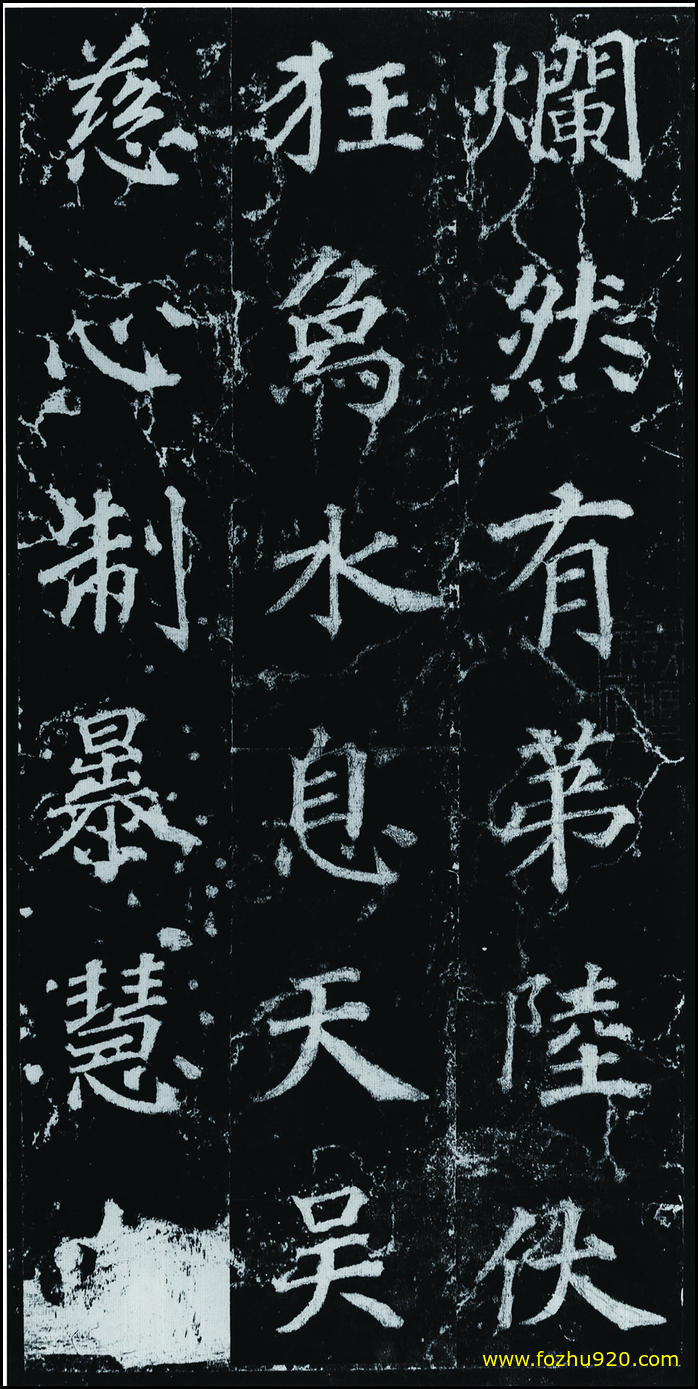 爛然有苐陸伏
狂為水息天吴
慈心制暴慧
www.fozhu920.com